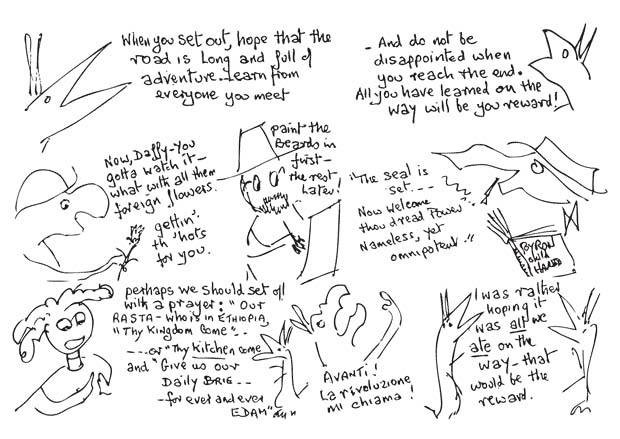 When you set out, hope that the
road is Long and full of
adventure. Learn from
everyone you meet
- And do not be
disappointed when
you reach the end.
All you have learned on the
way will be you reward!
Now, Daffy-You
gotta watch it -
what with all them
foreign flowers.
gettin'.
th 'hots
for you.
paint the
Beards in
first -
the rest
Later!
"The seal is
set. - - -
Now welcome
thou dread Power
Nameless, yet
omnipotent."
BYRON
child
HAROLD
perhaps we should set off
with a prayer: "Our
RASTA - who is in ETHIOPIA,
"Thy Kingdom Come" - -
- - or "Thy Kitchen come
and "Give us our
Daily BRIE - -
- for ever and ever
EDAM"
AVANTI!
La rivoluzione
mi chiama!
I was rather
hoping it
was all we
ate on the
way - that
would be the
reward.